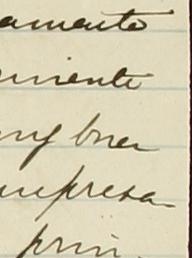 amente
miente
muy buen
impresa-
prin-